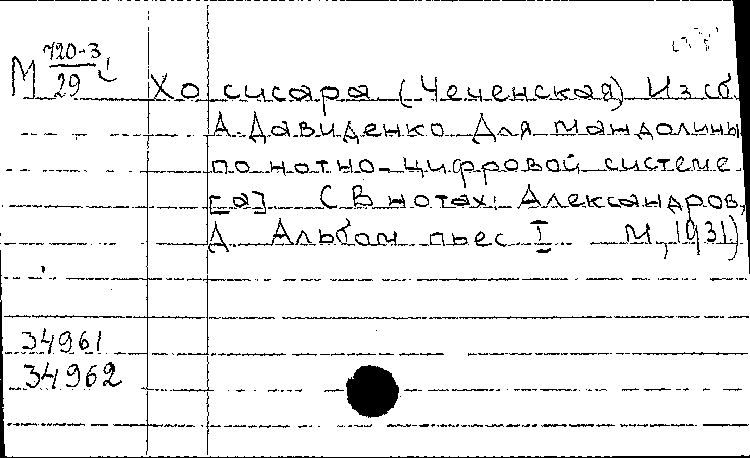 М 720-3
29
Хо сисара (Чеченская) Из сб.
А. Давиденко Для мандолины
по нотно-цифровой системе
[a]. (В нотах: Александров,
А. Альбом пьес I. М, 1931)
34961
34962